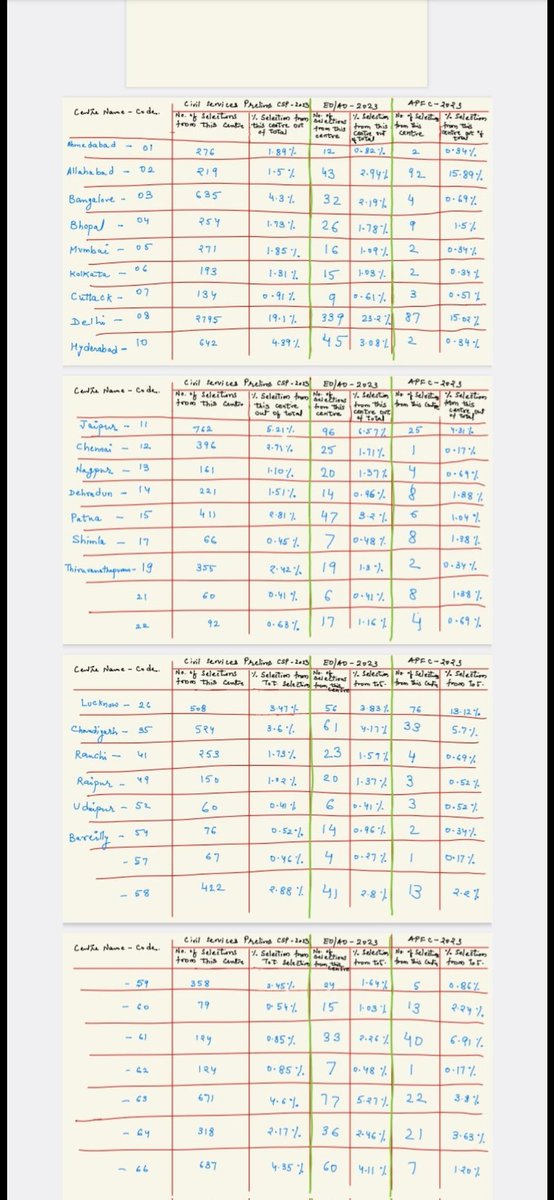 Centre Name - Code. Civil Services Prelims CSP-2023 EO/AO-2023 APFC-2023
No. of Selections from this Centre % Selection from this centre out of total No. of Selections from this centre % Selection from this centre out of total No. of Selections from this centre % Selection from this centre out of total
Ahmedabad - 01 276 1.89% 12 0.82% 2 0.34%
Allahabad - 02 219 1.5% 43 2.94% 92 15.89%
Bangalore - 03 635 4.3% 32 2.19% 4 0.69%
Bhopal - 04 254 1.73% 26 1.78% 9 1.5%
Mumbai - 05 271 1.85% 16 1.09% 2 0.34%
Kolkata - 06 193 1.31% 15 1.03% 2 0.34%
Cuttack - 07 134 0.91% 9 0.61% 3 0.51%
Delhi - 08 2795 19.1% 339 23.2% 87 15.02%
Hyderabad - 10 642 4.39% 45 3.08% 2 0.34%
Centre Name - Code. Civil Services Prelims CSP-2023 EO/AO-2023 APFC-2023
No. of Selections from this Centre % Selection from this centre out of total No. of Selections from this centre % Selection from this centre out of total No of Selection from this Centre % Selection from this centre out of total
Jaipur - 11 762 5.21% 96 6.57% 25 4.31%
Chennai - 12 396 2.71% 25 1.71% 1 0.17%
Nagpur - 13 161 1.10% 20 1.37% 4 0.69%
Dehradun - 14 221 1.51% 14 0.96% 8 1.38%
Patna - 15 411 2.81% 47 3.2% 6 1.04%
Shimla - 17 66 0.45% 7 0.48% 8 1.38%
Thiruvananthapuram - 19 355 2.42% 19 1.3% 2 0.34%
21 60 0.41% 6 0.41% 8 1.38%
22 92 0.63% 17 1.16% 4 0.69%
Centre Name - Code. Civil Services Prelims CSP-2023 EO/AO-2023 APFC-2023
No. of Selections from this Centre % Selection from Tot Selection No. of Selections from this Centre % Selection from tot. No of Selection from this Centre % Selection from Tot.
Lucknow - 26 508 3.47% 56 3.83% 76 13.12%
Chandigarh - 35 524 3.6% 61 4.17% 33 5.7%
Ranchi - 41 253 1.73% 23 1.57% 4 0.69%
Raipur - 49 150 1.02% 20 1.37% 3 0.52%
Udaipur - 52 60 0.41% 6 0.41% 3 0.52%
Bareilly - 54 76 0.52% 14 0.96% 2 0.34%
- 57 67 0.46% 4 0.27% 1 0.17%
- 58 422 2.88% 41 2.8% 13 2.2%
Centre Name - Code. Civil Services Prelims CSP-2023 EO/AO-2023 APFC-2023
No. of Selections from this Centre % Selection from Tot Selection No. of Selections from this Centre % Selection from tot. No of Selection from this Centre % Selection from Tot.
- 59 358 2.45% 24 1.64% 5 0.86%
- 60 79 0.54% 15 1.03% 13 2.24%
- 61 124 0.85% 33 2.26% 40 6.91%
- 62 124 0.85% 7 0.48% 1 0.17%
- 63 671 4.6% 77 5.27% 22 3.8%
- 64 318 2.17% 36 2.46% 21 3.63%
- 66 637 4.35% 60 4.11% 7 1.20%